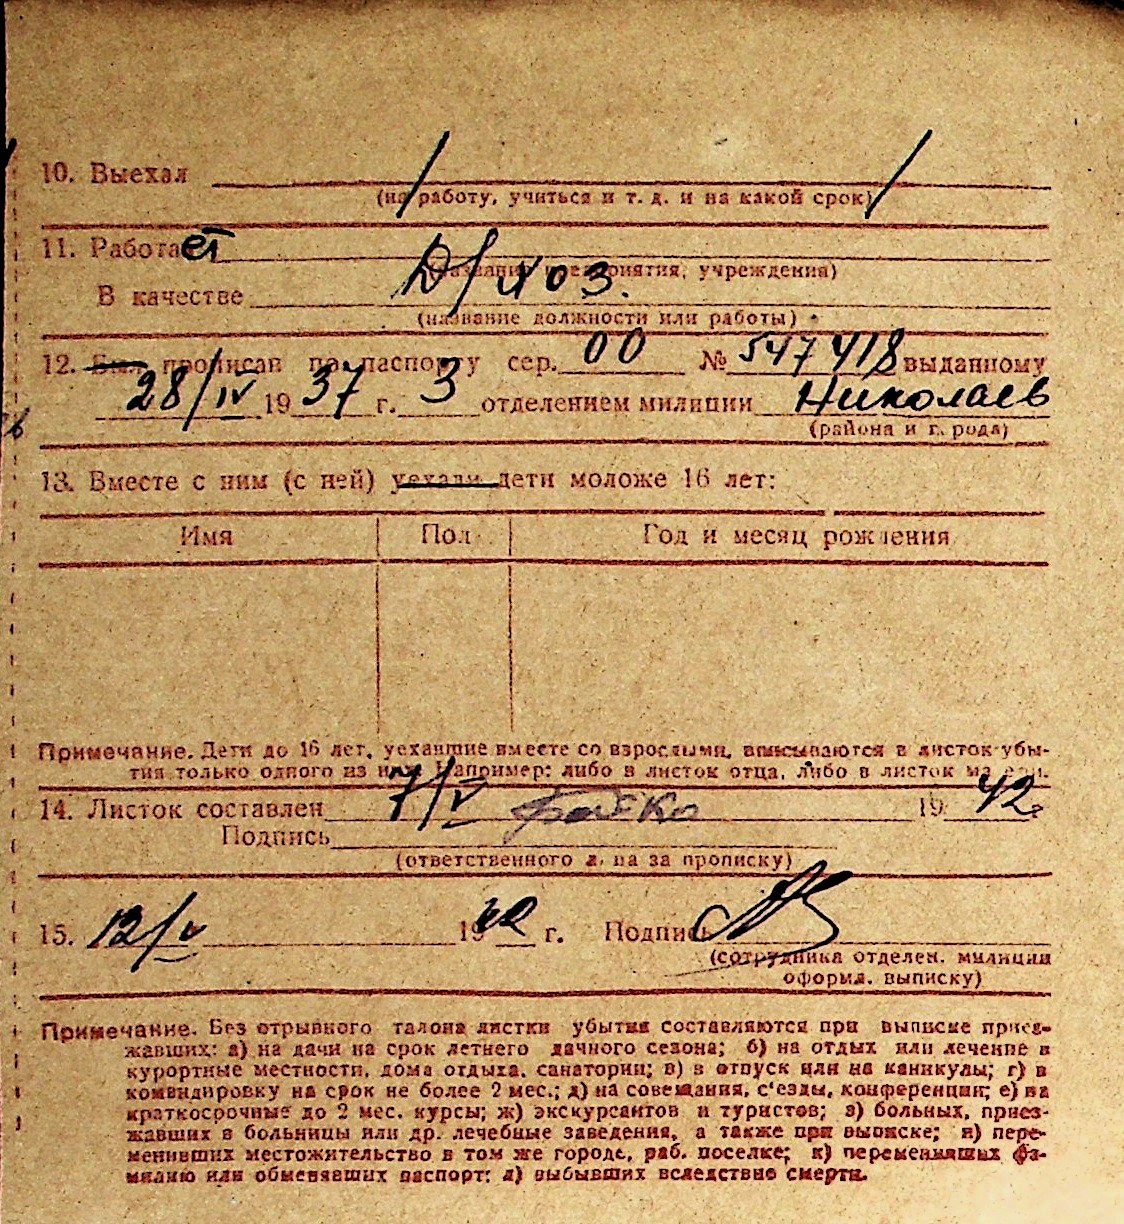 10. Выехал
(на работу, учиться и т. д. и на какой срок)
11. Работает
(название предприятия, учреждения)
В качестве Д/хоз.
(название должности или работы)
12. Был прописан по паспорту сер. 00 № 547418 выданному
28/IV 1937 г. 3 отделением милиции Николаев
(района и города)
13. Вместе с ним (с ней) уехали дети моложе 16 лет:
Имя Пол Год и месяц рождения
Примечание. Дети до 16 лет, уехавшие вместе со взрослыми, вписываются в листок убы-
тия только одного из них. Например: либо в листок отца, либо в листок матери.
14. Листок составлен 7/V 1942
Подпись
(ответственного лица за прописку)
15. 12/V 1942 г. Подпись
(сотрудника отделен. милиции
оформл. выписку)
Примечание. Без отрывного талона листки убытия составляются при выписке приез-
жавших: а) на дачи на срок летнего дачного сезона; б) на отдых или лечение в
курортные местности, дома отдыха, санатории; в) в отпуск или на каникулы; г) в
командировку на срок не более 2 мес.; д) на совещания, с'езды, конференции; е) на
краткосрочные до 2 мес. курсы; ж) экскурсантов и туристов; з) больных, приез-
жавших в больницы или др. лечебные заведения, а также при выписке; и) пере-
менивших местожительство в том же городе, раб. поселке; к) переменивших фа-
милию или обменявших паспорт; л) выбывших вследствие смерти.